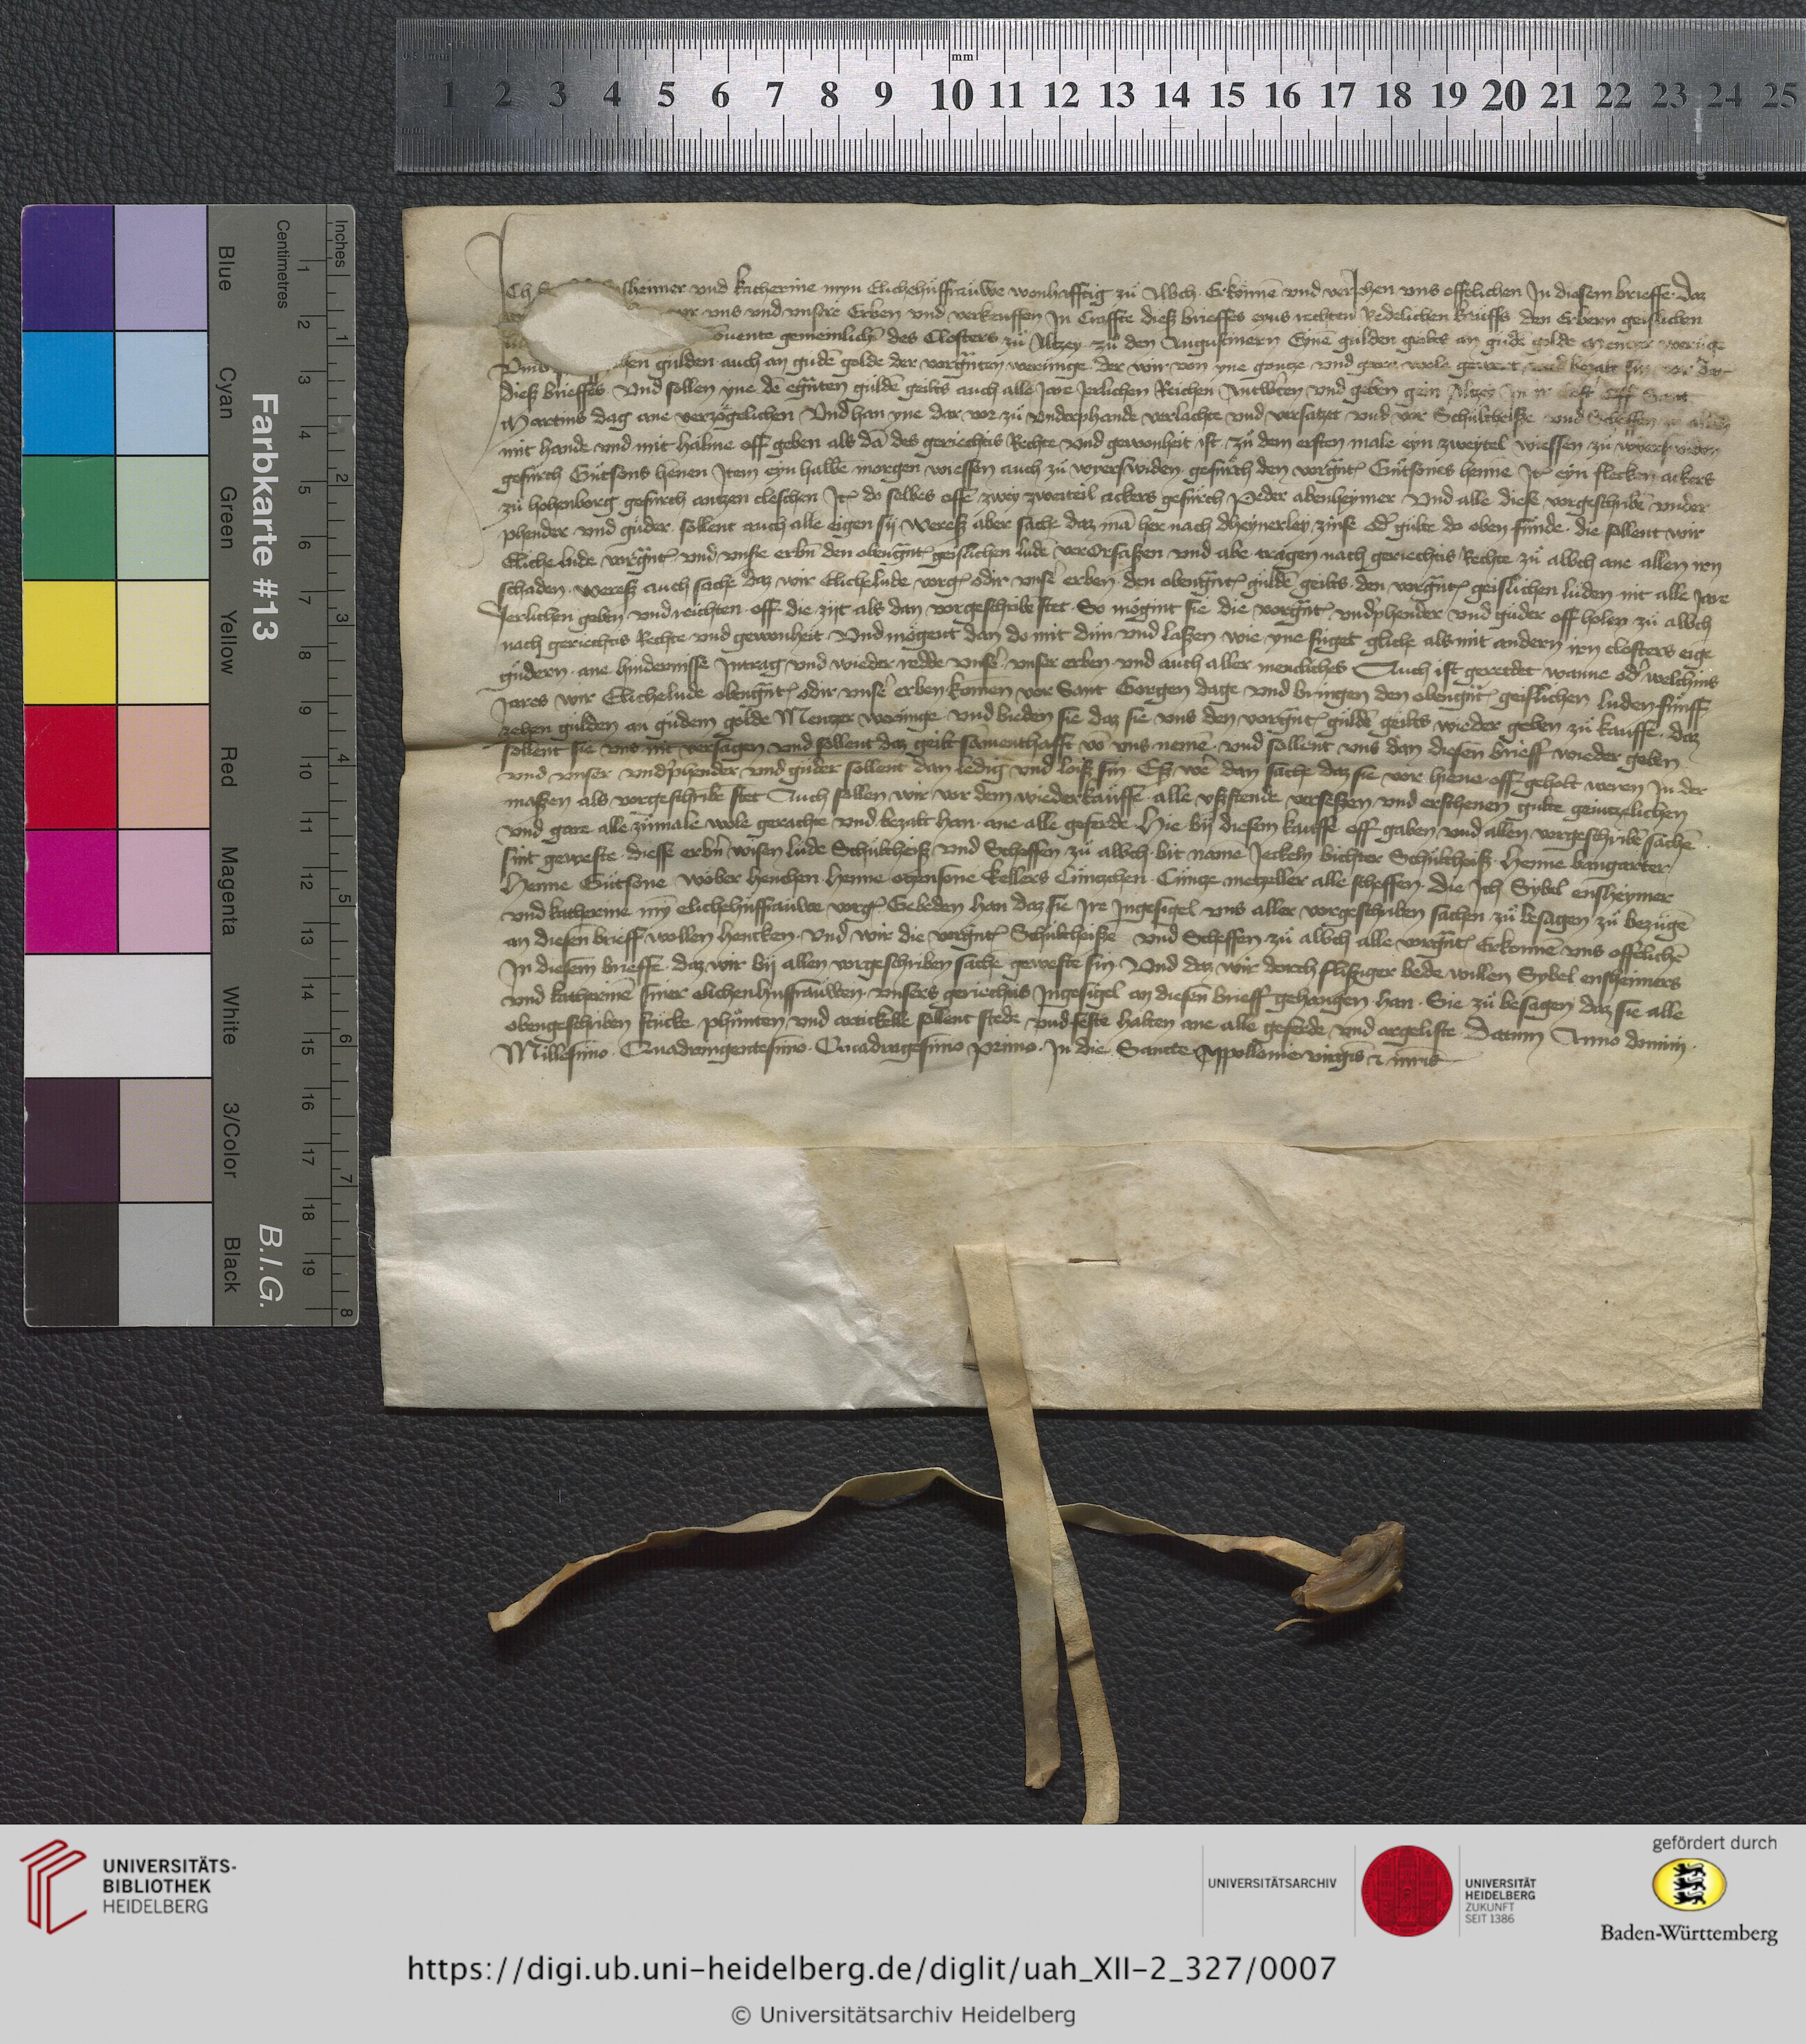 mm
1 2 3 4 5 6 7 8 9 10 11 12 13 14 15 16 17 18 19 20 21 22 23 24 25
Inches
Centimetres
Farbkarte #13
B.I.G.
Blue
Cyan
Green
Yellow
Red
Magenta
White
3/Color
Black
1 2 3 4 5 6 7 8 9 10 11 12 13 14 15 16 17 18 19
1 2 3 4 5 6 7 8
Ich heimer vnd katherine myn Elichehußfrauwe wonhafftig zů Albch Erkönnē vnd veriehen vns offelichen In diesem brieffe daz
vor vns vnd vnsire Erben vnd verkeuffen In Craffte dieß brieffes eyns rechten Redelichen Kauffs den Erbern geistlichen
Couente gemeinlich des Closters zů Altzey zů den Augustinern Eynē gulden gelts an gudē golde Mentzer werunge
gulden auch an gudē golde der vorgn̄ten werunge der wir von yne gantze vnd gare wole gewert vnd bezalt sin vor dat
dieß brieffes Vnd sollen yne dē egn̄ten guldē gelts auch alle Jare Jerlichen Reichen Antwortē vnd geben gein Altzey In ir off Sant
Martins dag ane verzogelichen Vnd han yne dar vor zů vnderphande verlachte vnd versatzt vnd vor Schultheiße vnd Scheffen zů albch
mit hande vnd mit halme off geben als dā des geriechtis Rechte vnd gewonheit ist zů dem ersten male eyn zweytel wiessen zů
gefurch Gůtsons henen Item eyn halbē morgen wiessen auch zů gefurch den vorgn̄t Gůtsones henne Itē eyn flecken ackers
zů hohenborg gefurch antzen cleschen Itē do selbes offē zwey zweiteil ackers gefurch Peder abenheymer Vnd alle diese vorgeschribē vnder
phender vnd guder sollent auch alle eigen sij Wereß aber sache daz mā her nach dheynerley zinse odʼ gulte do oben funde die sollent wir
Elichelude vorgn̄t vnd vnsre erbn̄ den obengn̄t geistlichen ludē verorsaßen vnd abe tragen nach geriechtis Rechte zů albch ane allen iren
schaden Wereß auch sache daz wir Elichelude vorg odir vnsʼ erben den obengn̄t guldē gelts den vorgn̄t geistlichen luden nit alle Jare
Jerlichen geben vnd reichten off die zijt als dan vorgeschribē stet So mögint sie die vorgn̄t vndʼphender vnd guder off holen zů albch
nach geriechtis Rechte vnd gewonheit Vnd mögent dan do mit dun vnd laßen wie yne fuget gliche als mit andern iren closters eigē
gudern ane hindernisse Intrag vnd wieder redde vnsʼ vnser erben vnd auch aller mencliches Auch ist geredet wanne odʼ welchins
Jares wir Elichelude obengn̄t odir vnsʼ erben komen vor Sant Gorgen dage vnd bringen den obengn̄t geistlichen luden funff
zehen gulden an gudem golde Mentzer werunge vnd bieden sie daz sie vns den vorgn̄t guldē gelts wieder geben zů kauffe daz
sollent sie vns nit versagen vnd sollent daz gelt sāmenthafft vō vns nemē vnd sollent vns dan diesen brieff wieder geben
vnd vnser vndʼphender vnd guder sollent dan ledig vnd loiß sin Eß wē dan sache daz sie vor hiene off geholt weren In der
maßen als vorgeschribē stet Auch sollen wir vor dem wiederkauffe alle vßstende verseßen vnd erschenen gulte geintzelichen
vnd gare alle zumale wole gerachte vnd bezalt han ane alle geferde Hie bij diesem kauffe off gaben vnd allen vorgeschribē sachē
sint geweste diesse erbn̄ wisen lude Schultheiß vnd Scheffen zů albch bit name Jeckeln Schultheiß Henne bangarter
Henne Gutsone Wober henchen Henne otzensone Kellers Cuntzchen Cuntze metzeller alle scheffen Die Ich Sybel ensheymer
vnd katherine mȳ elichehußfrauwe vorg Gebeden han daz sie Ire Ingesigel vns aller vorgeschriben sachen zů besagen zů bezugē
an diesen brieff wollen hencken Vnd wir die vorgn̄t Schultheiße vnd Scheffen zů albch alle vorgn̄t Erkennē vns offelichē
In diesem brieffe daz wir bij allen vorgeschriben sache geweste sin Vnd daz wir dorch flißiger bede willen Sybel ensheimers
vnd katherinē siner elichenhusfrauwen vnsers geriechtis Ingesigel an diesen brieff gehangen han Sie zů besagen daz sie alle
obengeschriben stucke phunten vnd artickelle sollent stede vnd feste halten ane alle geferde vnd argeliste Datum Anno domini
Millesimo Quadringentesimo Quadragesimo primo In die Sancte Appollonie virgīs & mr̄is
UNIVERSITÄTS-
BIBLIOTHEK
HEIDELBERG
UNIVERSITÄTSARCHIV
UNIVERSITÄT
HEIDELBERG
ZUKUNFT
SEIT 1386
gefördert durch
Baden-Württemberg
https://digi.ub.uni-heidelberg.de/diglit/uah_XII-2_327/0007
© Universitätsarchiv Heidelberg